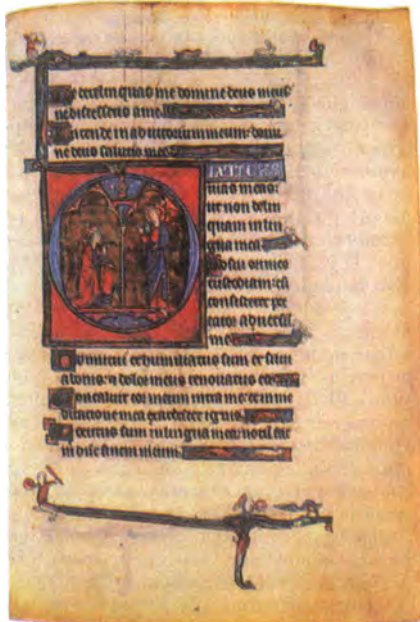 Ne derelinquas me domine deus meus
ne discesseris a me
Intende in adiutorium meum: domi
ne deus salutis mee
uias meas:
ut non delin
quam in lin
gua mea
Posui ori meo
custodiam: cu
consisteret pec
cator aduersu
me
humiliatus sum et silui
a bonis: et dolor meus renouatus est
Concaluit cor meum intra me: et in me
ditatione mea exardescet ignis
sum in lingua mea: notum fac
michi domine finem meum